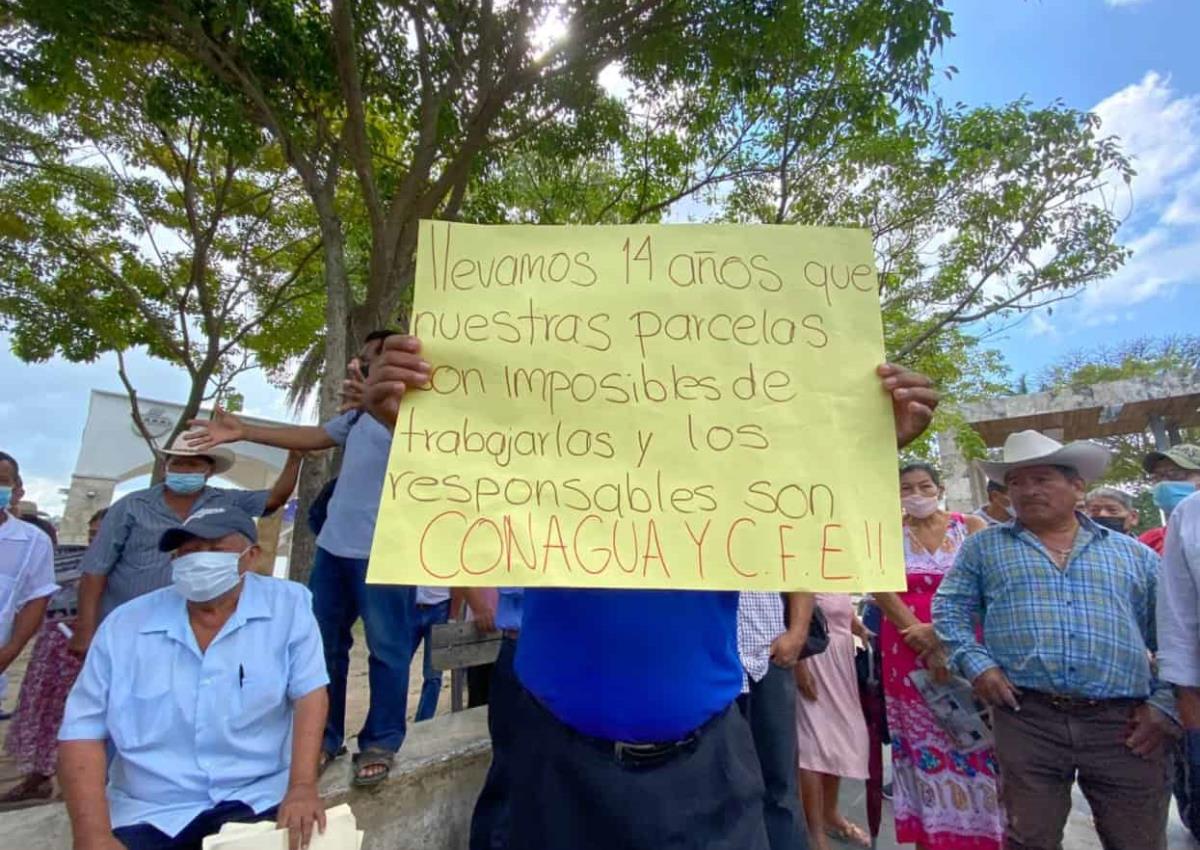 llevamos 14 años que
nuestras parcelas
son imposibles de
trabajarlas y los
responsables son
CONAGUA Y C.F.E.!!